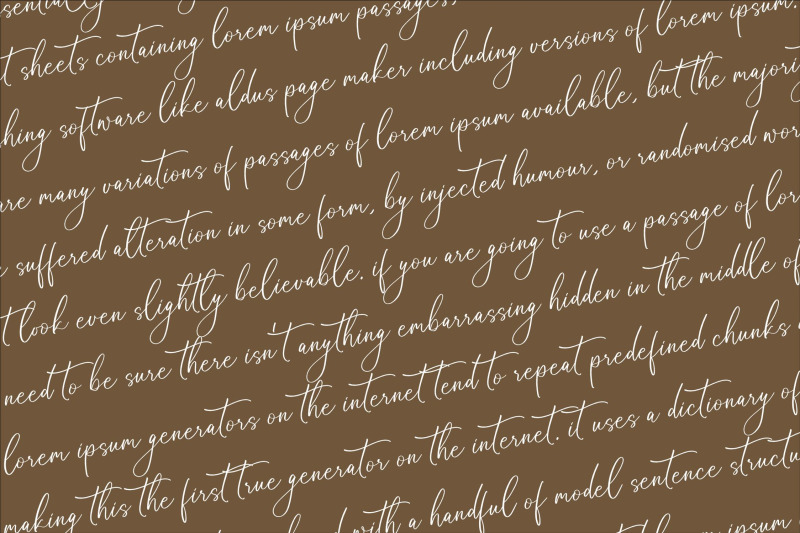 sentially
t sheets containing lorem ipsum passages,
hing software like aldus page maker including versions of lorem ipsum.
are many variations of passages of lorem ipsum available, but the majori
suffered alteration in some form, by injected humour, or randomised wor
t look even slightly believable. if you are going to use a passage of lor
need to be sure there isn't anything embarrassing hidden in the middle of
lorem ipsum generators on the internet tend to repeat predefined chunks
making this the first true generator on the internet. it uses a dictionary of
with a handful of model sentence structu